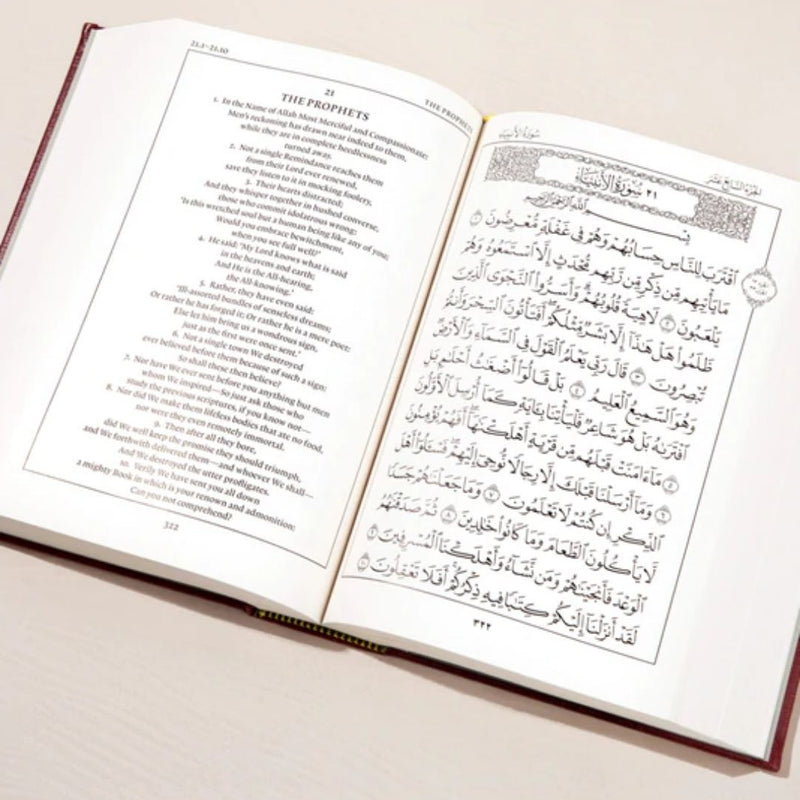 21.1–21.10
THE PROPHETS
21
THE PROPHETS
1. In the Name of Allah Most Merciful and Compassionate:
Men's reckoning has drawn near indeed to them,
while they are in complete heedlessness
turned away.
2. Not a single Remindance reaches them
from their Lord ever renewed,
save they listen to it in mocking foolery,
3. Their hearts distracted;
And they whisper together in hushed converse,
those who commit idolatrous wrong:
"Is this wretched soul but a human being like any of you;
Would you embrace bewitchment,
when you see full well?"
4. He said: "My Lord knows what is said
in the heavens and earth;
And He is the All-hearing,
the All-knowing."
5. Rather, they have even said:
"Ill-assorted bundles of senseless dreams;
Or rather he has forged it; Or rather he is a mere poet:
Else let him bring us a wondrous sign,
Just as the first were once sent."
6. Not a single town We destroyed
ever believed before them because of such a sign;
So shall these then believe?
7. Nor have We ever sent before you anything but men
whom We inspired—So just ask those who
study the previous scriptures, if you know not—
8. Nor did We make them lifeless bodies that ate no food,
nor were they even remotely immortal.
9. Then after all they bore,
did We well keep the promise they should triumph,
and We forthwith delivered them—and whoever We shall—
And We destroyed the utter profligates.
10. Verily We have sent you all down
a mighty Book in which is your renown and admonition:
Can you not comprehend?
322
الجزء السابع عشر
سورة الأنبياء
٢١ سُورَةُ الأَنبِيَاءِ
بِسْمِ اللَّهِ الرَّحْمَٰنِ الرَّحِيمِ
ٱقْتَرَبَ لِلنَّاسِ حِسَابُهُمْ وَهُمْ فِي غَفْلَةٍ مُّعْرِضُونَ ١
مَا يَأْتِيهِم مِّن ذِكْرٍ مِّن رَّبِّهِم مُّحْدَثٍ إِلَّا ٱسْتَمَعُوهُ وَهُمْ
يَلْعَبُونَ ٢ لَاهِيَةً قُلُوبُهُمْ وَأَسَرُّوا۟ ٱلنَّجْوَى ٱلَّذِينَ
ظَلَمُوا۟ هَلْ هَٰذَا إِلَّا بَشَرٌ مِّثْلُكُمْ أَفَتَأْتُونَ ٱلسِّحْرَ وَأَنتُمْ
تُبْصِرُونَ ٣ قَالَ رَبِّي يَعْلَمُ ٱلْقَوْلَ فِي ٱلسَّمَاءِ وَٱلْأَرْضِ
وَهُوَ ٱلسَّمِيعُ ٱلْعَلِيمُ ٤ بَلْ قَالُوا۟ أَضْغَٰثُ أَحْلَٰمٍ بَلِ
ٱفْتَرَىٰهُ بَلْ هُوَ شَاعِرٌ فَلْيَأْتِنَا بِـَٔايَةٍ كَمَا أُرْسِلَ ٱلْأَوَّلُونَ
٥ مَا ءَامَنَتْ قَبْلَهُم مِّن قَرْيَةٍ أَهْلَكْنَٰهَا أَفَهُمْ يُؤْمِنُونَ
٦ وَمَا أَرْسَلْنَا قَبْلَكَ إِلَّا رِجَالًا نُّوحِي إِلَيْهِمْ فَسْـَٔلُوا۟ أَهْلَ
ٱلذِّكْرِ إِن كُنتُمْ لَا تَعْلَمُونَ ٧ وَمَا جَعَلْنَٰهُمْ جَسَدًا
لَّا يَأْكُلُونَ ٱلطَّعَامَ وَمَا كَانُوا۟ خَٰلِدِينَ ٨ ثُمَّ صَدَقْنَٰهُمُ
ٱلْوَعْدَ فَأَنجَيْنَٰهُمْ وَمَن نَّشَاءُ وَأَهْلَكْنَا ٱلْمُسْرِفِينَ ٩
لَقَدْ أَنزَلْنَا إِلَيْكُمْ كِتَٰبًا فِيهِ ذِكْرُكُمْ أَفَلَا تَعْقِلُونَ ١٠
٣٢٢